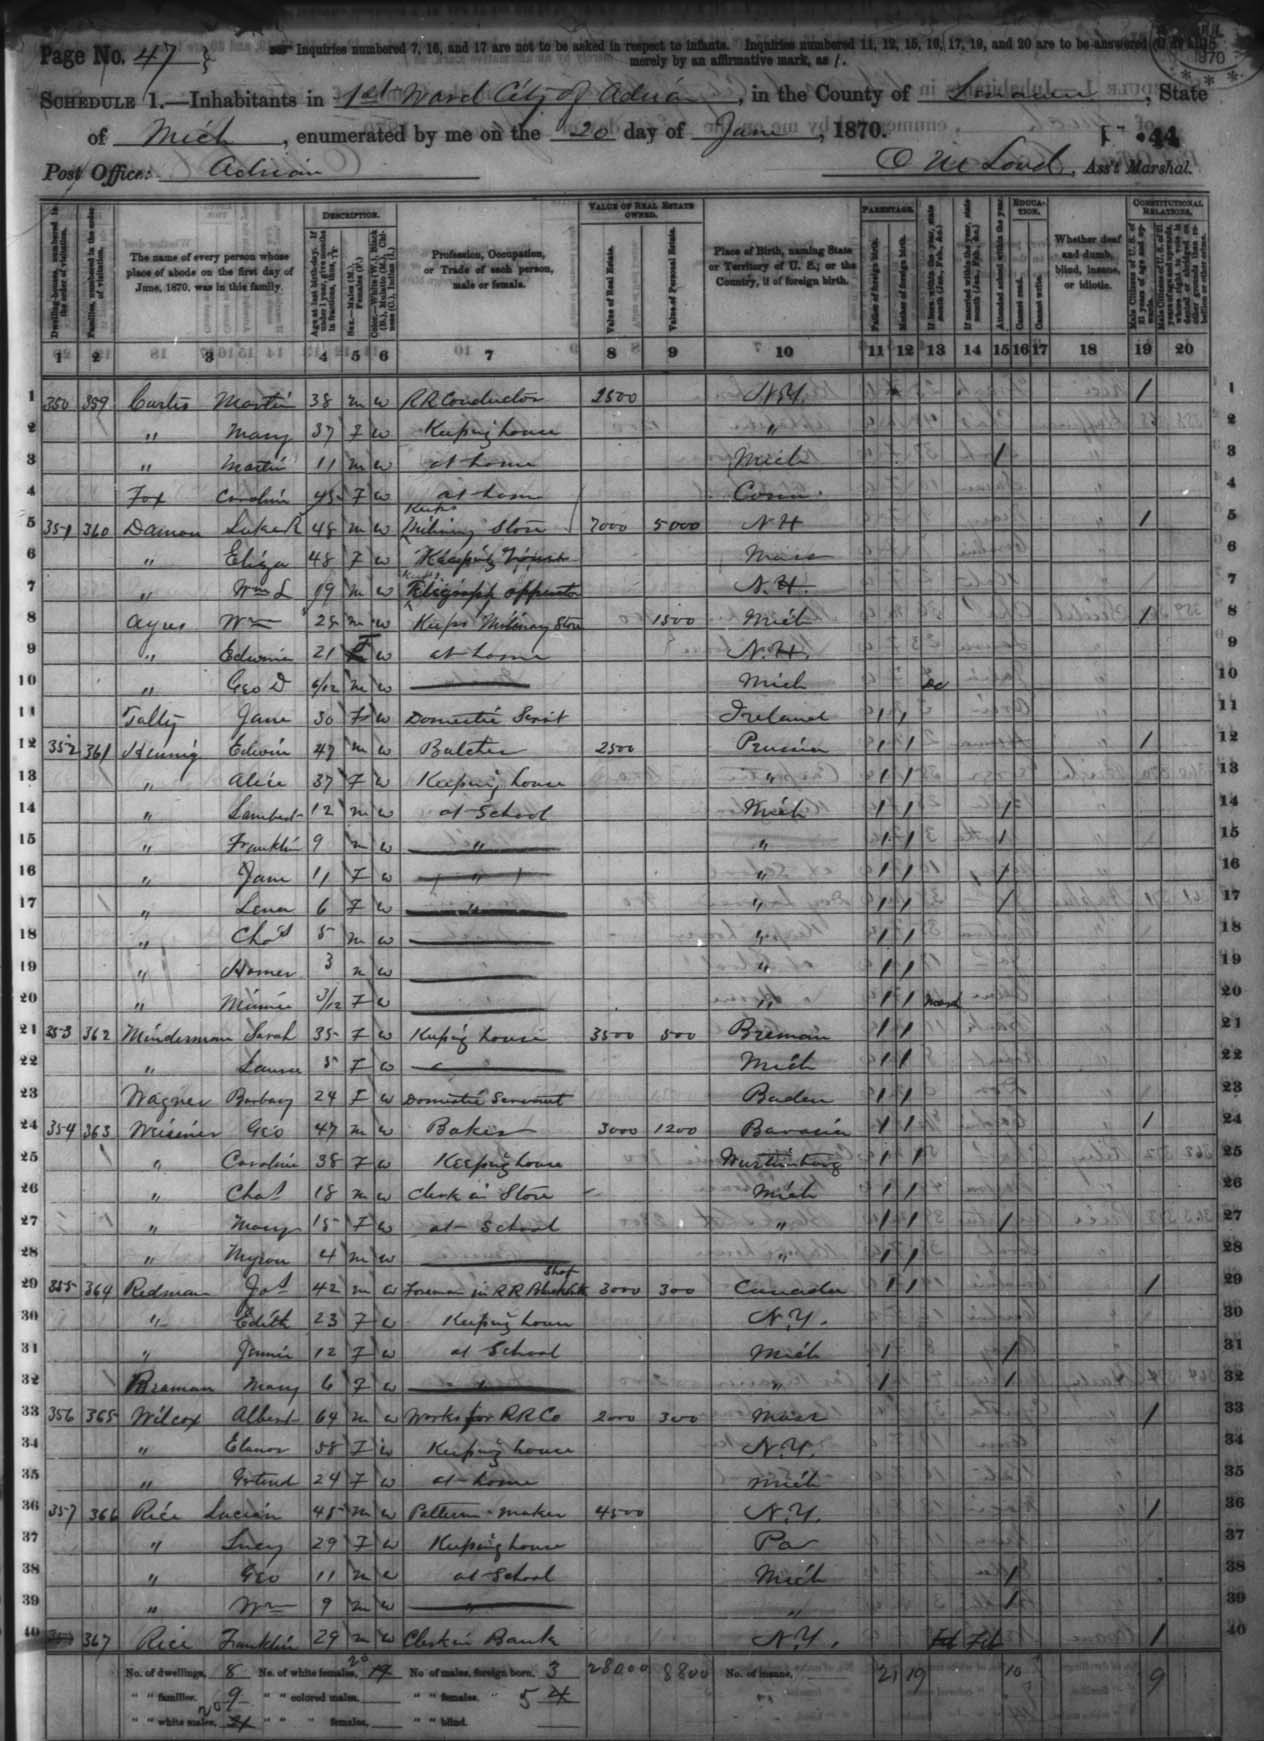 Page No. 47
Inquiries numbered 7, 16, and 17 are not to be asked in respect to infants. Inquiries numbered 11, 12, 15, 16, 17, 19, and 20 are to be answered (if at all)
merely by an affirmative mark, as /.
SCHEDULE 1.—Inhabitants in 1st Ward City of Adrian, in the County of Lenawee, State
of Mich, enumerated by me on the 20 day of June, 1870.
44
Post Office: Adrian
Ass't Marshal.
DESCRIPTION.
VALUE OF REAL ESTATE OWNED.
PARENTAGE.
EDUCATION.
CONSTITUTIONAL RELATIONS.
Dwelling-houses, numbered in the order of visitation.
Families, numbered in the order of visitation.
The name of every person whose place of abode on the first day of June, 1870, was in this family.
Age at last birthday. If under 1 year, give months in fractions, thus, 3/12
Sex.—Males (M.), Females (F.)
Color.—White (W.), Black (B.), Mulatto (M.), Chinese (C.), Indian (I.)
Profession, Occupation, or Trade of each person, male or female.
Value of Real Estate.
Value of Personal Estate.
Place of Birth, naming State or Territory of U. S.; or the Country, if of foreign birth.
Father of foreign birth.
Mother of foreign birth.
If born within the year, state month (Jan., Feb., &c.)
If married within the year, state month (Jan., Feb., &c.)
Attended school within the year.
Cannot read.
Cannot write.
Whether deaf and dumb, blind, insane, or idiotic.
Male Citizens of U. S. of 21 years of age and upwards.
1 2 3 4 5 6 7 8 9 10 11 12 13 14 15 16 17 18 19 20
1 350 359 Curtis Martin 38 m w RR Conductor 2500 N.Y. / 1
2 " Mary 37 F w Keeping house " 2
3 " Martin 11 m w at home Mich / 3
4 Fox Caroline 45 F w at home Conn. 4
5 351 360 Damon Luke R 48 m w Keeps Milinery Store 7000 5000 N H / 5
6 " Eliza 48 F w Keeping house Mass 6
7 " Wm L 19 m w Telegraph opperator N.H. 7
8 Ayres Wm 28 m w Keeps Milinary Store 1500 Mich / 8
9 " Edwina 21 F w at home N.H. 9
10 " Geo D 6/12 m w Mich Dec 10
11 Jane 30 F w Domestic Servt Ireland / / 11
12 352 361 Hennig Edwin 47 m w Butcher 2500 Prussia / / / 12
13 " Alice 37 F w Keeping house " / / 13
14 " Lambert 12 m w at School Mich / / / 14
15 " Franklin 9 m w " " / / / 15
16 " Jane 11 F w " " / / / 16
17 " Lena 6 F w " " / / / 17
18 " Chas 5 m w " / / 18
19 " Homer 3 m w " / / 19
20 " Minnie 3/12 F w " / / March 20
21 353 362 Minderman Sarah 35 F w Keeping house 3500 500 Bremain / / 21
22 " Laura 5 F w Mich / / 22
23 Wagner Barbary 24 F w Domestic Servant Baden / / 23
24 354 363 Meisner Geo 47 m w Baker 3000 1200 Bavaria / / / 24
25 " Caroline 38 F w Keeping house Wurtemburg / / 25
26 " Chas 18 m w Clerk in Store Mich / / 26
27 " Mary 15 F w at School " / / / 27
28 " Myron 4 m w " / / 28
29 355 364 Redman Jas 42 m w Foreman in RR Blacksmith Shop 3000 300 Canada / / / 29
30 " Edith 23 F w Keeping house N.Y. 30
31 " Jennie 12 F w at School Mich / / 31
32 Braman Mary 6 F w " " / / 32
33 356 365 Wilcox Albert 64 m w Works for RR Co 2000 300 Mass / 33
34 " Elanor 58 F w Keeping house N.Y. 34
35 " 24 F w at home Mich 35
36 357 366 Rice Lucian 45 m w Pattern maker 4500 N.Y. / 36
37 " Lucy 29 F w Keeping house Pa 37
38 " Geo 11 m w at School Mich / 38
39 " Wm 9 m w " " / 39
40 367 Rice Franklin 29 m w Clerk in Bank N.Y. / 40
No. of dwellings, 8 No. of white females, 20 19 No. of males, foreign born, 3 28000 8800 No. of insane, 21 19 10 9
" " families. 9 " " colored males. " " females, " 5 4
" " white males, 20 21 " " " females, " " blind.